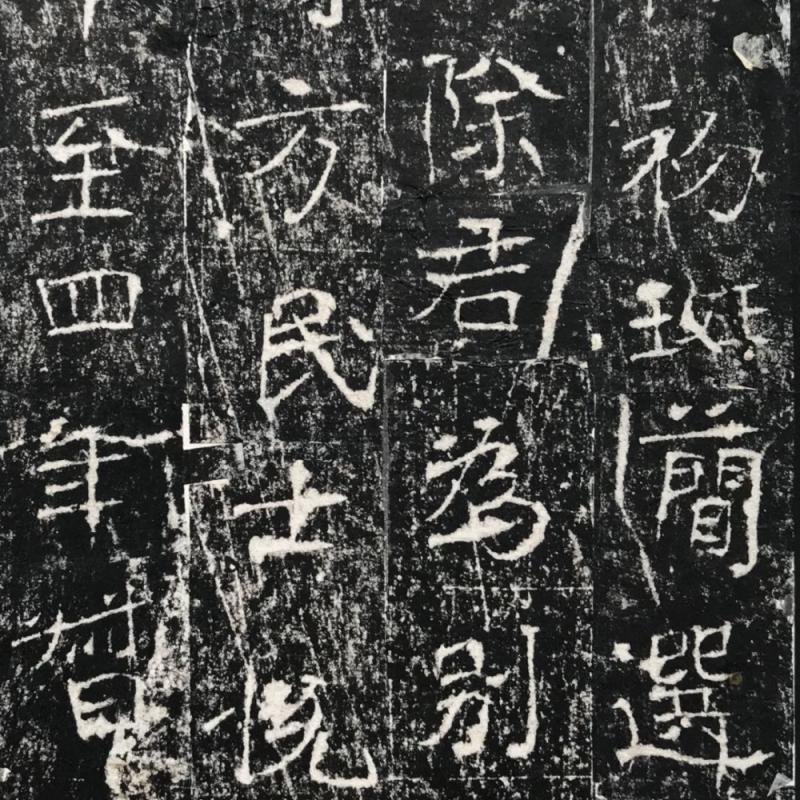 初班簡選
除君為別
方民士悅
至四年